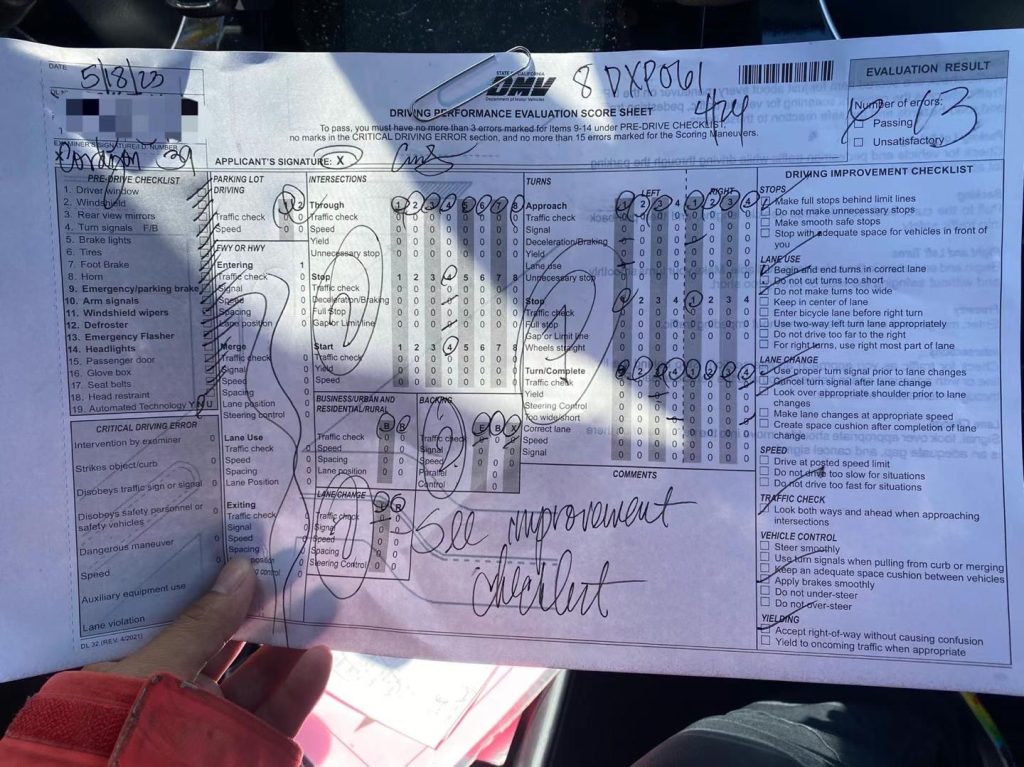 DATE
5/8/23
STATE OF CALIFORNIA
DMV
Department of Motor Vehicles
8DXP061
4/24
DRIVING PERFORMANCE EVALUATION SCORE SHEET
To pass, you must have no more than 3 errors marked for Items 9-14 under PRE-DRIVE CHECKLIST,
no marks in the CRITICAL DRIVING ERROR section, and no more than 15 errors marked for the Scoring Maneuvers.
EVALUATION RESULT
Number of errors:
13
Passing
Unsatisfactory
EXAMINER'S SIGNATURE/I.D. NUMBER
APPLICANT'S SIGNATURE: X
PRE-DRIVE CHECKLIST
1. Driver window
2. Windshield
3. Rear view mirrors
4. Turn signals F/B
5. Brake lights
6. Tires
7. Foot Brake
8. Horn
9. Emergency/parking brake
10. Arm signals
11. Windshield wipers
12. Defroster
13. Emergency Flasher
14. Headlights
15. Passenger door
16. Glove box
17. Seat belts
18. Head restraint
19. Automated Technology Y N U
CRITICAL DRIVING ERROR
Intervention by examiner 0
Strikes object/curb 0
Disobeys traffic sign or signal 0
Disobeys safety personnel or
safety vehicles 0
Dangerous maneuver 0
Speed 0
Auxiliary equipment use 0
Lane violation 0
DL 32 (REV. 4/2021)
PARKING LOT
DRIVING
1 2
Traffic check 0 0
Speed 0 0
FWY OR HWY
Entering 1
Traffic check 0
Signal 0
Speed 0
Spacing 0
Lane position 0
Merge
Traffic check 0
Signal 0
Speed 0
Spacing 0
Lane position 0
Steering control 0
Lane Use
Traffic check 0
Speed 0
Spacing 0
Lane Position 0
Exiting
Traffic check 0
Signal 0
Speed 0
Spacing 0
INTERSECTIONS
Through 1 2 3 4 5 6 7 8
Traffic check
Speed
Yield
Unnecessary stop
Stop 1 2 3 4 5 6 7 8
Traffic check
Deceleration/Braking
Full Stop
Gap or Limit line
Start 1 2 3 4 5 6 7 8
Traffic check
Yield
Speed
BUSINESS/URBAN AND
RESIDENTIAL/RURAL
B R
Traffic check
Speed
Spacing
Lane position
BACKING
Traffic check
Signal
Speed
Parallel
Control
LANE CHANGE
L R
Traffic check
Signal
Speed
Spacing
Steering Control
TURNS
LEFT RIGHT
Approach 1 2 3 4 1 2 3 4
Traffic check
Signal
Deceleration/Braking
Yield
Lane use
Unnecessary stop
Stop 1 2 3 4 1 2 3 4
Traffic check
Full stop
Gap or Limit line
Wheels straight
Turn/Complete 1 2 3 4 1 2 3 4
Traffic check
Yield
Steering Control
Too wide/short
Correct lane
Speed
Signal
COMMENTS
See improvement
checklist
DRIVING IMPROVEMENT CHECKLIST
STOPS
Make full stops behind limit lines
Do not make unnecessary stops
Make smooth safe stops
Stop with adequate space for vehicles in front of
you
LANE USE
Begin and end turns in correct lane
Do not cut turns too short
Do not make turns too wide
Keep in center of lane
Enter bicycle lane before right turn
Use two-way left turn lane appropriately
Do not drive too far to the right
For right turns, use right most part of lane
LANE CHANGE
Use proper turn signal prior to lane changes
Cancel turn signal after lane change
Look over appropriate shoulder prior to lane
changes
Make lane changes at appropriate speed
Create space cushion after completion of lane
change
SPEED
Drive at posted speed limit
Do not drive too slow for situations
Do not drive too fast for situations
TRAFFIC CHECK
Look both ways and ahead when approaching
intersections
VEHICLE CONTROL
Steer smoothly
Use turn signals when pulling from curb or merging
Keep an adequate space cushion between vehicles
Apply brakes smoothly
Do not under-steer
Do not over-steer
YIELDING
Accept right-of-way without causing confusion
Yield to oncoming traffic when appropriate